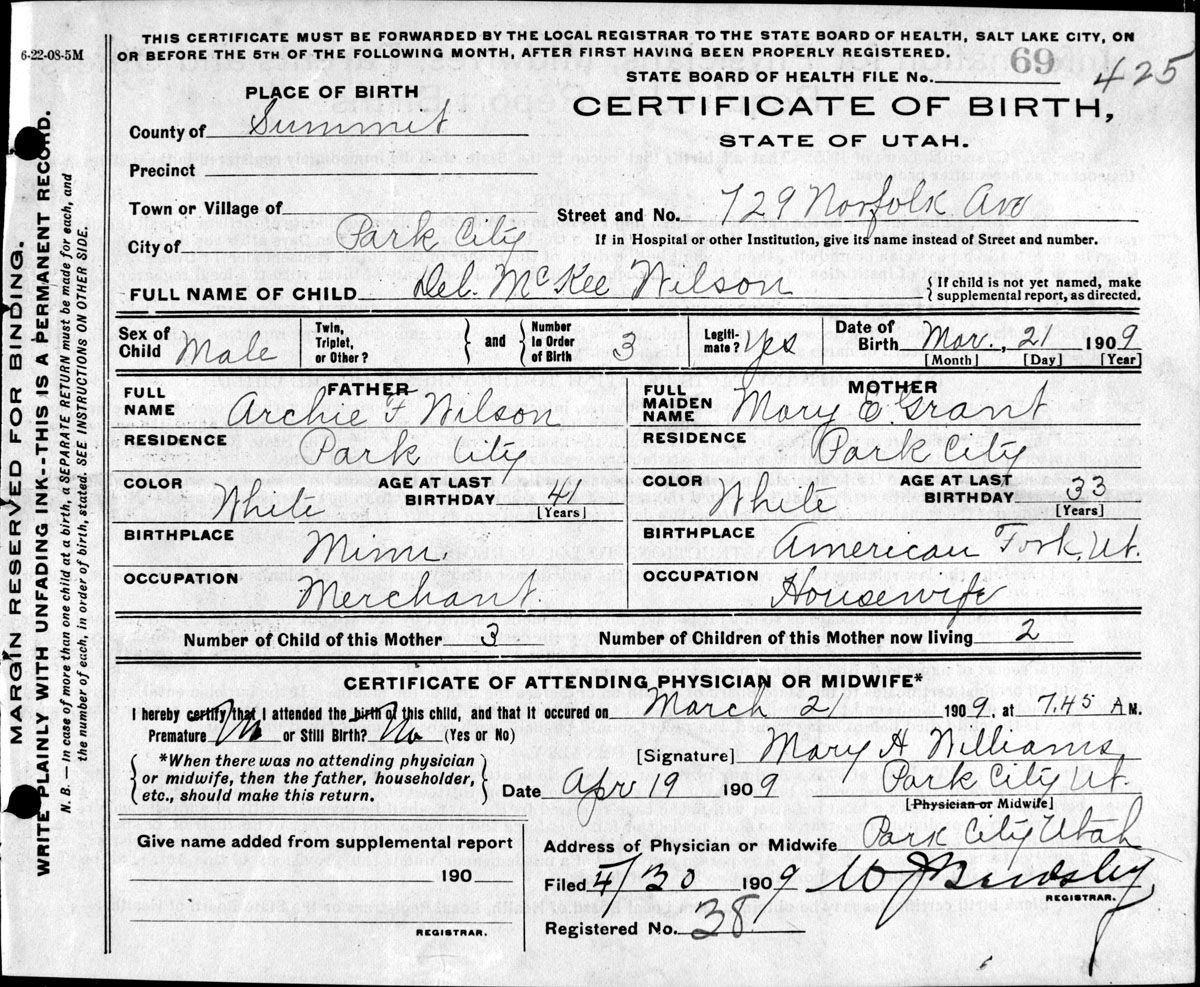 6-22-08-5M
THIS CERTIFICATE MUST BE FORWARDED BY THE LOCAL REGISTRAR TO THE STATE BOARD OF HEALTH, SALT LAKE CITY, ON
OR BEFORE THE 5TH OF THE FOLLOWING MONTH, AFTER FIRST HAVING BEEN PROPERLY REGISTERED.
STATE BOARD OF HEALTH FILE No. 69 425
PLACE OF BIRTH
CERTIFICATE OF BIRTH,
STATE OF UTAH.
County of Summit
Precinct
Town or Village of
Street and No. 729 Norfolk Ave
City of Park City
If in Hospital or other Institution, give its name instead of Street and number.
FULL NAME OF CHILD Del. McKee Wilson
{ If child is not yet named, make
supplemental report, as directed.
Sex of Child Male
Twin, Triplet, or Other? } and { Number in Order of Birth 3
Legiti- mate? yes
Date of Birth Mar., 21 1909
[Month] [Day] [Year]
FATHER
FULL NAME Archie F Wilson
MOTHER
FULL MAIDEN NAME Mary E Grant
RESIDENCE Park City
RESIDENCE Park City
COLOR White AGE AT LAST BIRTHDAY 41 [Years]
COLOR White AGE AT LAST BIRTHDAY 33 [Years]
BIRTHPLACE Minn.
BIRTHPLACE American Fork, Ut.
OCCUPATION Merchant.
OCCUPATION Housewife
Number of Child of this Mother 3 Number of Children of this Mother now living 2
CERTIFICATE OF ATTENDING PHYSICIAN OR MIDWIFE*
I hereby certify that I attended the birth of this child, and that it occured on March 21 1909, at 7.45 A M.
Premature No or Still Birth? No (Yes or No)
{ *When there was no attending physician
or midwife, then the father, householder,
etc., should make this return. }
[Signature] Mary H Williams
Date Apr 19 1909 Park City Ut.
[Physician or Midwife]
Give name added from supplemental report
190
REGISTRAR.
Address of Physician or Midwife Park City Utah
Filed 4/30 1909
REGISTRAR.
Registered No. 38
MARGIN RESERVED FOR BINDING.
WRITE PLAINLY WITH UNFADING INK---THIS IS A PERMANENT RECORD.
N. B. — In case of more than one child at a birth, a SEPARATE RETURN must be made for each, and
the number of each, in order of birth, stated. SEE INSTRUCTIONS ON OTHER SIDE.